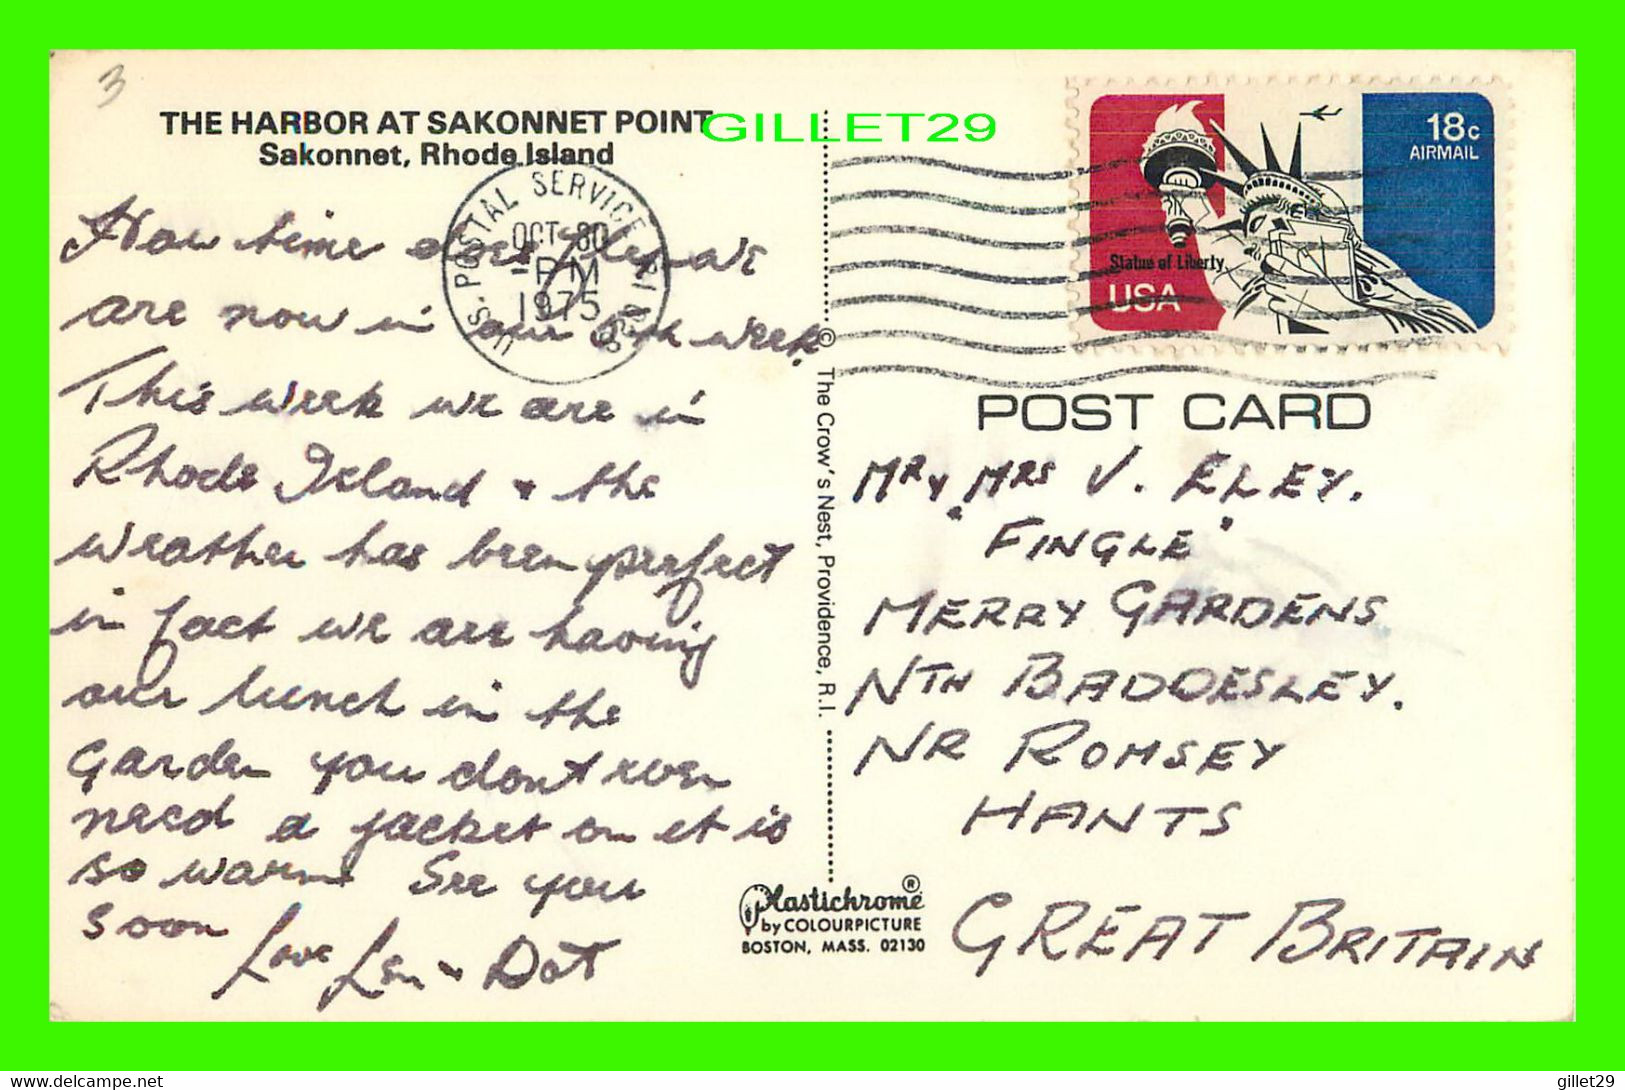 3
THE HARBOR AT SAKONNET POINT
Sakonnet, Rhode Island
GILLET29
How time does fly we
are now in our 6th week.
This week we are in
Rhode Island & the
weather has been perfect
in fact we are having
our lunch in the
garden you dont even
need a jacket on it is
so warm See you
soon
Love Len & Dot
U.S. POSTAL SERVICE RI
OCT 30
PM
1975
© The Crow's Nest, Providence, R.I.
Plastichrome®
by COLOURPICTURE
BOSTON, MASS. 02130
18c
AIRMAIL
Statue of Liberty
USA
POST CARD
MR & MRS V. ELEY.
"FINGLE"
MERRY GARDENS
NTH BADDESLEY.
NR ROMSEY
HANTS
GREAT BRITAIN
delcampe.net
gillet29